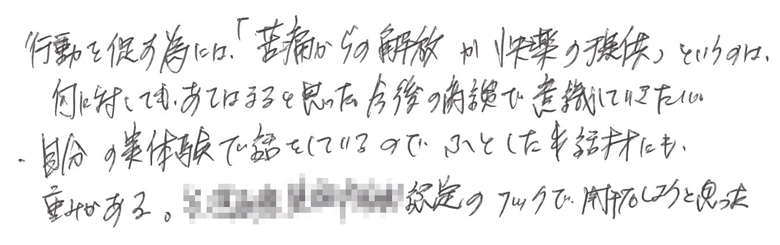 行動を促す為には、「苦痛からの解放 か 快楽の提供」というのは、
何に対しても、あてはまると思った。今後の商談で意識していきたい。
・自分の実体験で話をしているので、ふとした話にも、
重みがある。認定のフックで、開拓しようと思った